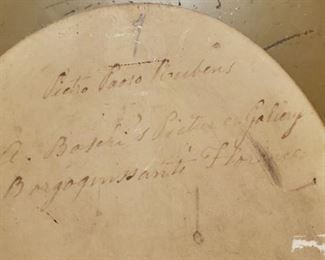 Pietro Paolo Rubens
A. Boschi's Picture Gallery
Borgognissanti Florence